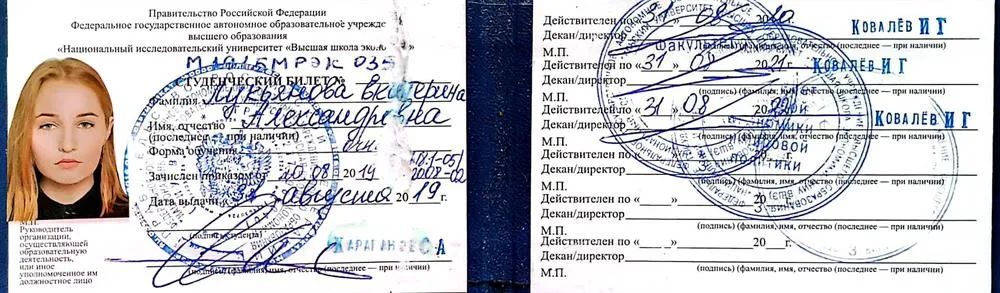 Правительство Российской Федерации
Федеральное государственное автономное образовательное учрежде
высшего образования
«Национальный исследовательский университет «Высшая школа эконо
СТУДЕНЧЕСКИЙ БИЛЕТ №
Фамилия Лукьянова Екатерина
Имя, отчество Александровна
(последнее — при наличии)
Форма обучения очн.
Зачислен приказом от 20.08 2019
Дата выдачи «31» августа 2019 г.
(подпись студента)
М.П.
Руководитель
организации,
осуществляющей
образовательную
деятельность,
или иное
уполномоченное им
должностное лицо
(подпись) (фамилия, имя, отчество (последнее — при наличии)
Действителен по 08 2020.
КОВАЛЁВ И Г
Декан/директор
М.П.
(последнее — при наличии)
Действителен по «31» 08 2021г.
КОВАЛЁВ И Г
Декан/директор
М.П.
(подпись) (фамилия, имя, отчество (последнее — при наличии)
Действителен по «31» 08 2022г.
КОВАЛЁВ И Г
Декан/директор
М.П.
(подпись) (фамилия, имя, отчество (последнее — при наличии)
Действителен по «
20 г.
Декан/директор
М.П.
(подпись) (фамилия, имя, отчество (последнее — при наличии)
Действителен по «
20 г.
Декан/директор
М.П.
(подпись) (фамилия, имя, отчество (последнее — при наличии)
Действителен по «___» 20___г.
Декан/директор
М.П.
(подпись) (фамилия, имя, отчество (последнее — при наличии)